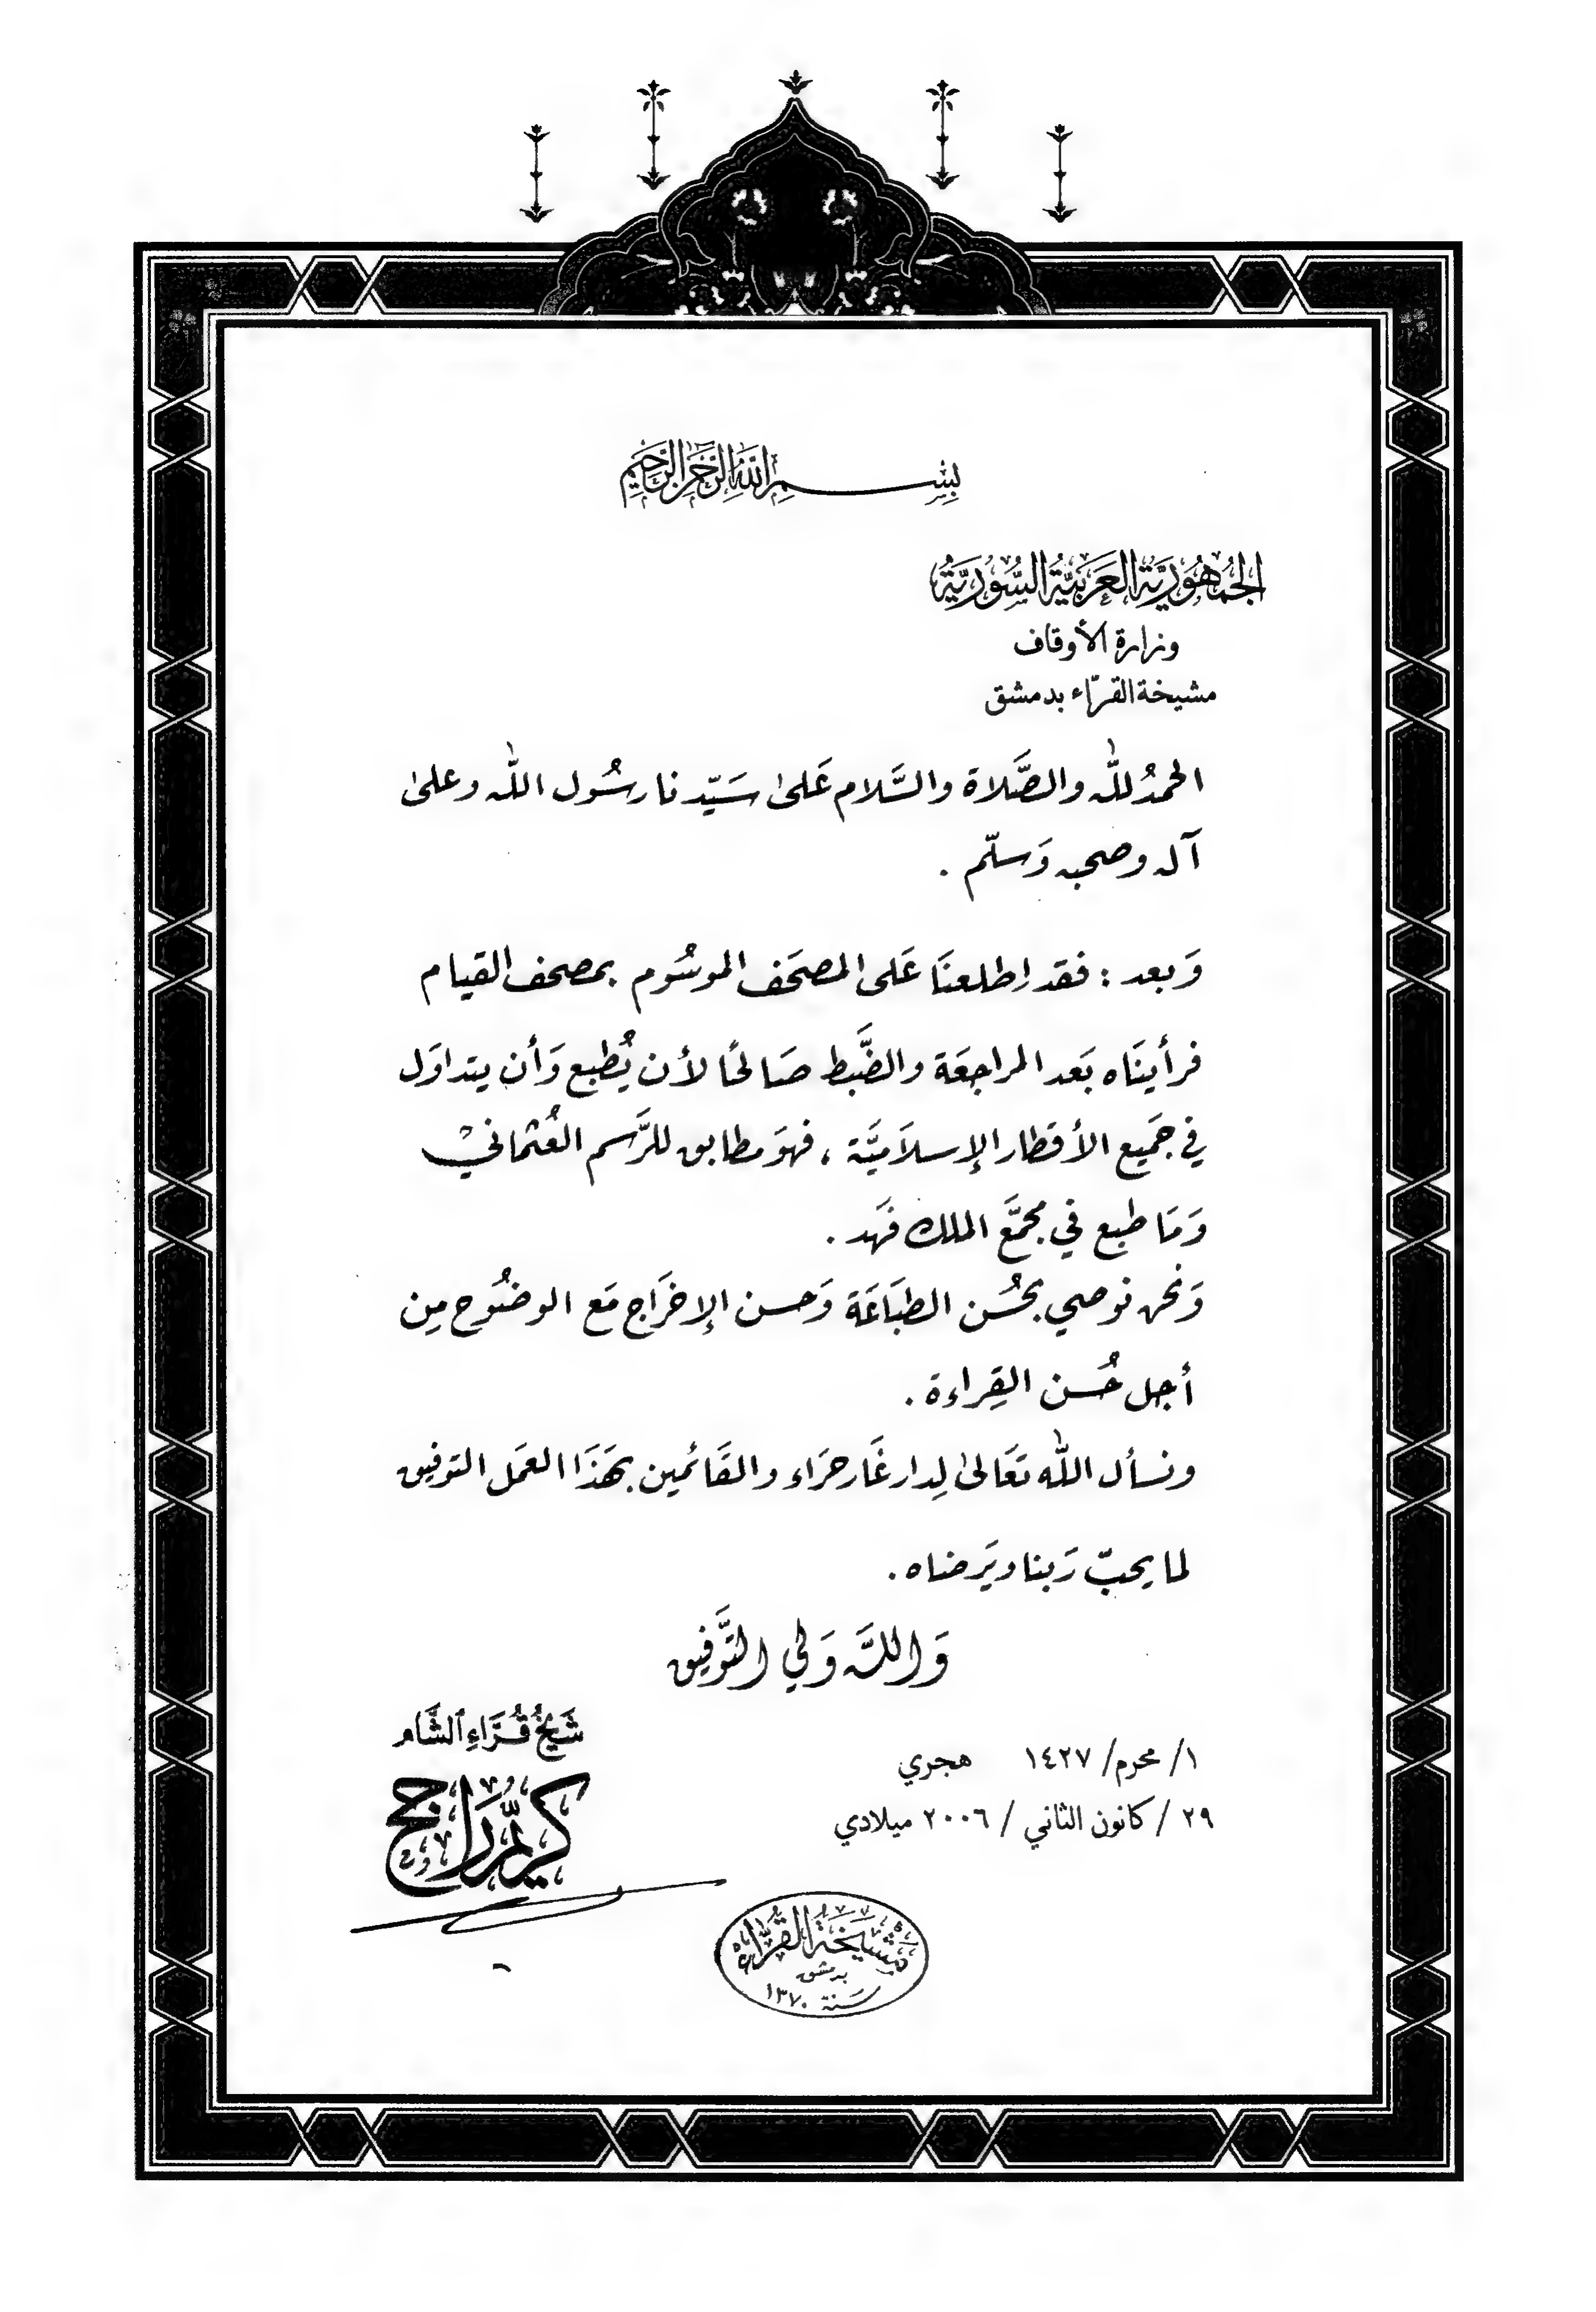 بِسْمِ اللَّهِ الرَّحْمَٰنِ الرَّحِيمِ
الجُمْهُورِيَّةُ العَرَبِيَّةُ السُّورِيَّةُ
وزارة الأوقاف
مشيخة القرّاء بدمشق
الحمدُ للّٰه والصَّلاة والسَّلام عَلىٰ سَيّدنا رسُول اللّٰه وعلىٰ
آله وصحبه وَسلّم .
وَبعد : فقد اِطلعنَا عَلى المصحَف الموسُوم بمصحف القيام
فرأينَاه بَعد المراجعَة والضَّبط صَالحًا لأن يُطبع وَأن يتداوَل
في جَميع الأقطار الإسلاَميَّة ، فهوَ مطابق للرَّسم العُثمانيْ
وَمَا طبع في مجمَّع الملك فَهَد .
وَنحن نوصي بحُسَن الطبَاعَة وَحسن الإخرَاج مَع الوضُوح مِن
أجل حُسن القِراءة .
ونسأل اللّٰه تعَالىٰ لِدار غَار حرَاء والقَائمين بهَذَا العمَل التوفيق
لما يحبّ رَبنا ويَرضاه .
وَاللَّه وَلي التَّوفيق
شَيْخُ قُرَّاءِ الشَّام
كريّم رَاجح
١/ محرم/ ١٤٢٧ هجري
٢٩ / كانون الثاني / ٢٠٠٦ ميلادي
مَشْيَخَةُ القُرَّاء
بدمشق
سَنة ١٣٧٠